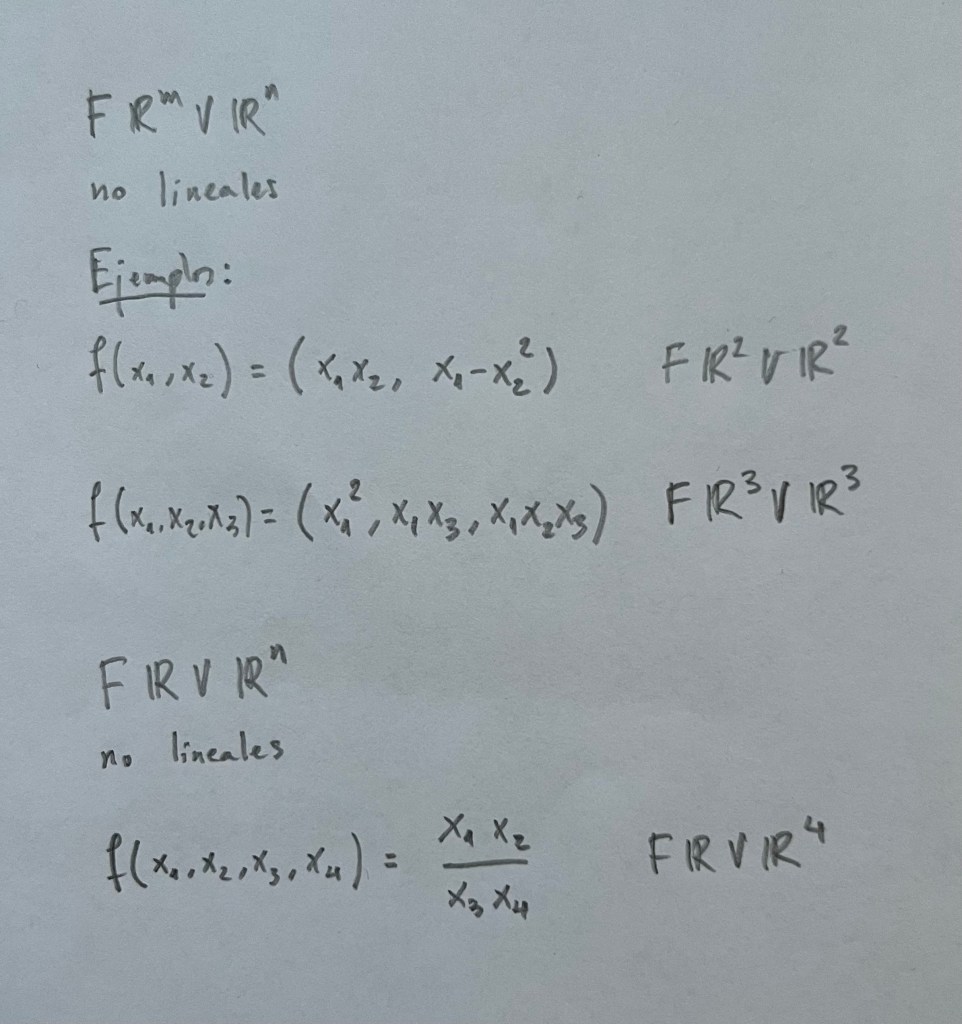 F ℝᵐ V ℝⁿ
no lineales
Ejemplos:
f(x₁, x₂) = (x₁x₂, x₁-x₂²) F ℝ² V ℝ²
f(x₁, x₂, x₃) = (x₁², x₁x₃, x₁x₂x₃) F ℝ³ V ℝ³
F ℝ V ℝⁿ
no lineales
f(x₁, x₂, x₃, x₄) = x₁ x₂ / x₃ x₄ F ℝ V ℝ⁴